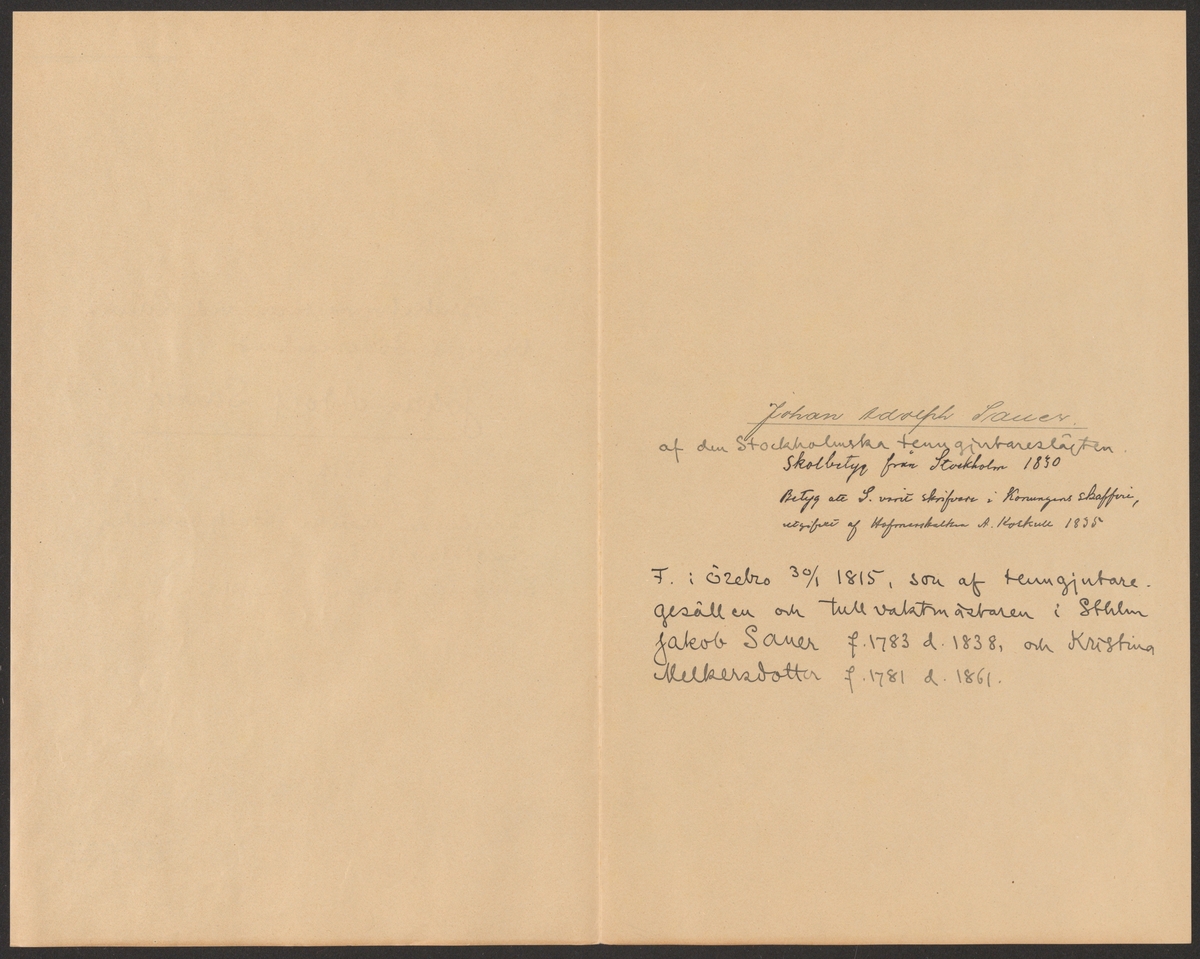 Johan Adolph Sauer.
af den Stockholmska tenngjutaresläjten.
Skolbetyg från Stockholm 1830
Betyg att S. varit skrifvare i Konungens skafferi,
utgifvet af Hofmarskalken A. Koskull 1835
F. i Örebro 30/1 1815, son af tenngjutare-
gesällen och tullvaktmästaren i Sthlm
Jakob Sauer f. 1783 d. 1838, och Kristina
Melkersdotter f. 1781 d. 1861.